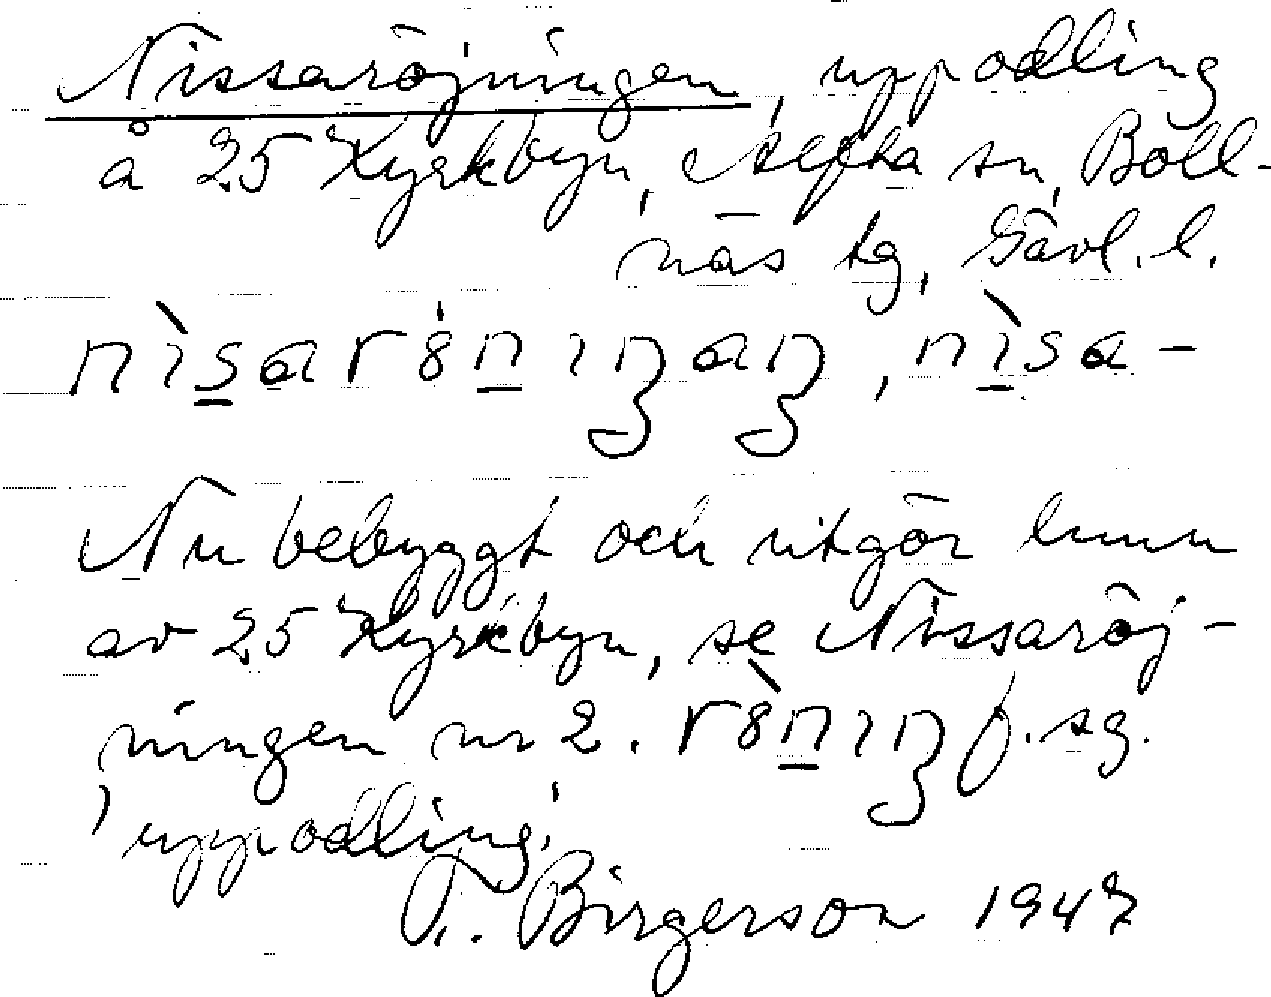 Nissaröjningen, uppodling
å 25 Kyrkbyn, Alfta sn, Boll-
näs tg, Gävl. l.
nìsarö́niŋaŋ, nìsa-
Nu bebyggt och utgör
av 25 Kyrkbyn, se Nissaröj-
ningen nr 2. rö̀niŋ f. sg.
'uppodling.'
T. Birgerson 1947